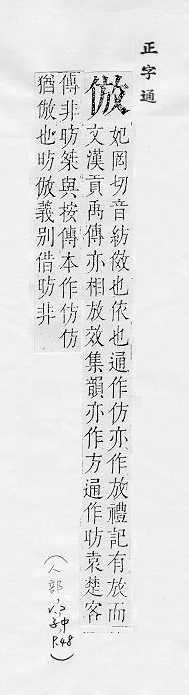 正字通
倣
妃罔切音紡傚也依也通作仿亦作放禮記有放而
文漢貢禹傳亦相放效集韻亦作方通作昉袁楚客
傳非昉桀與按傳本作仿仿
猶倣也昉倣義别借昉非
(人部 子中 P.48)